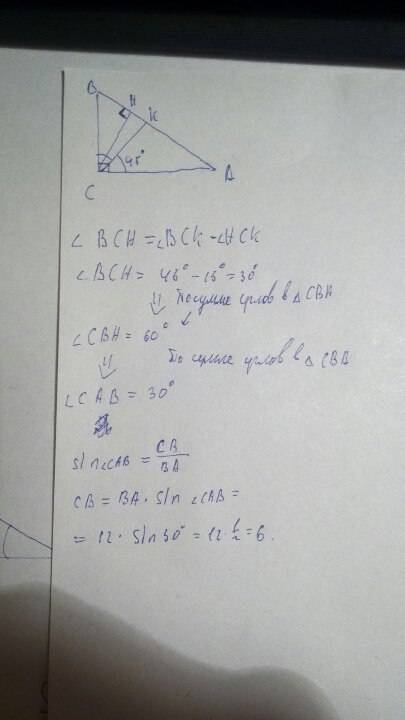 B
H
K
45°
A
C
∠BCH = ∠BCK - ∠HCK
∠BCH = 45° - 15° = 30°
⇓ По сумме углов в △CBH
∠CBH = 60°
⇓ По сумме углов в △CBA
∠CAB = 30°
sin∠CAB = CB/BA
CB = BA · sin ∠CAB =
= 12 · sin 30° = 12 · 1/2 = 6.